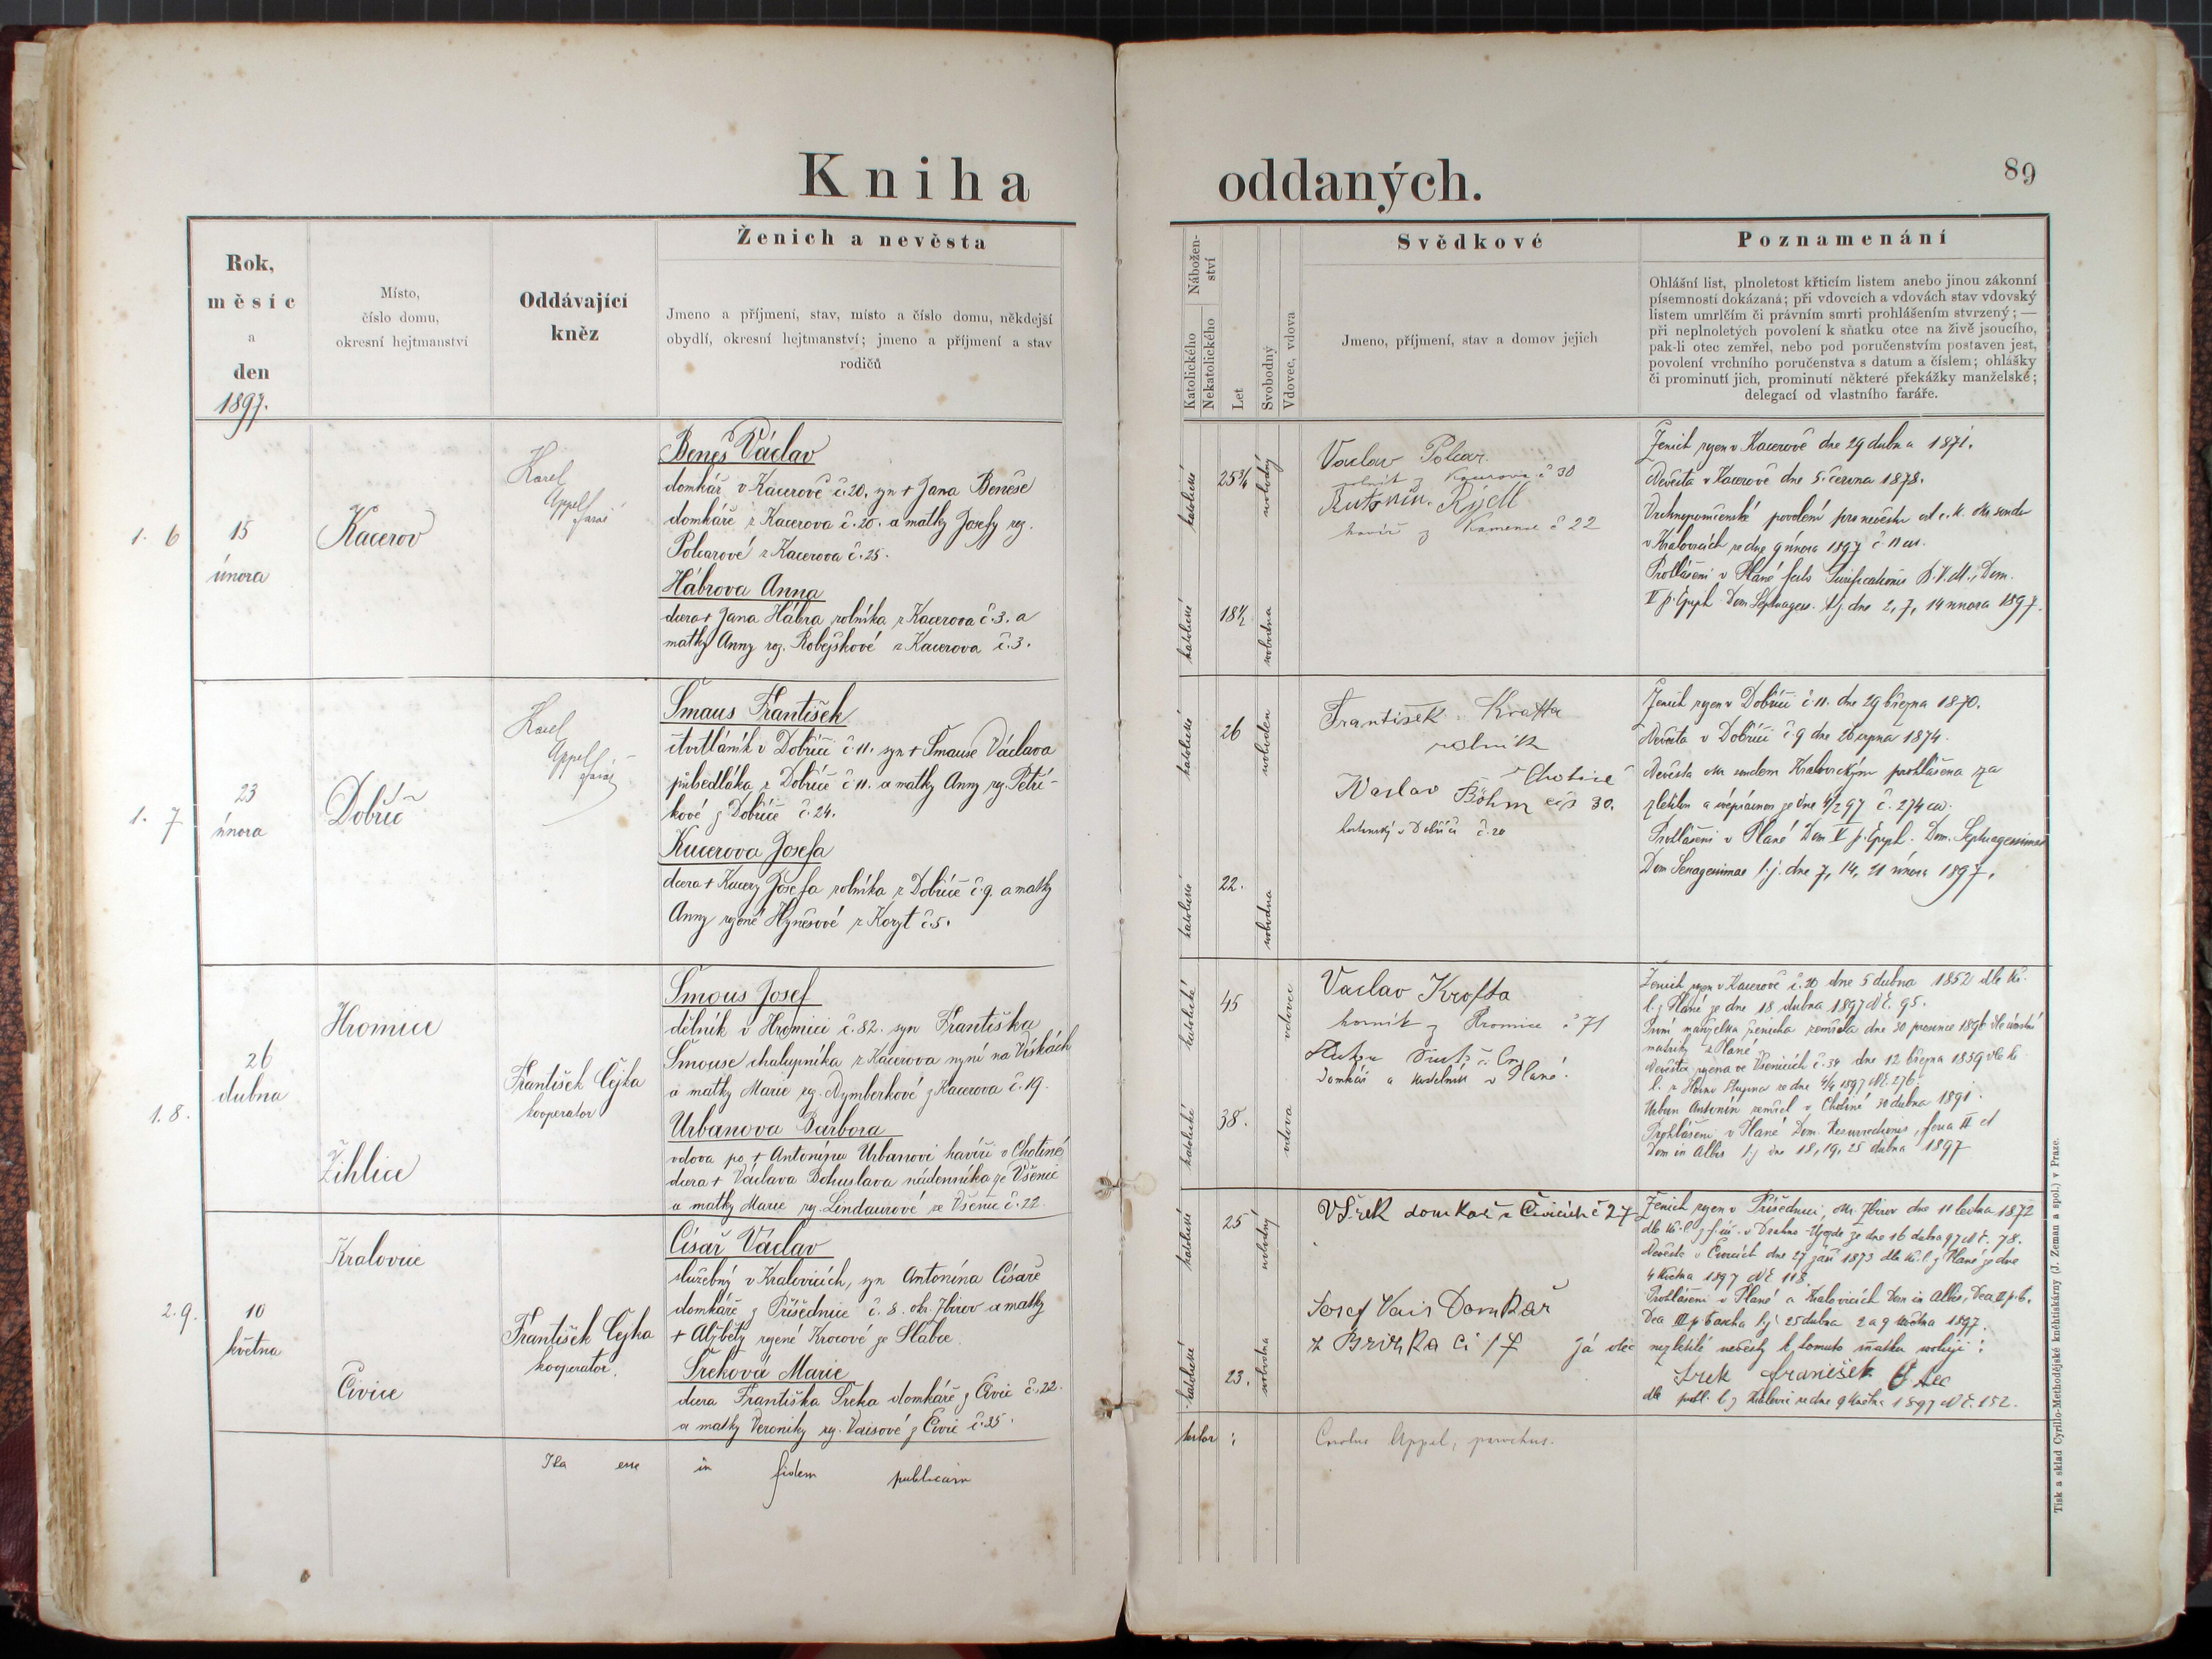 Kniha oddaných.
89
Rok,
měsíc
a
den
1897.
Místo,
číslo domu,
okresní hejtmanství
Oddávající
kněz
Ženich a nevěsta
Jmeno a příjmení, stav, místo a číslo domu, někdejší
obydlí, okresní hejtmanství; jmeno a příjmení a stav
rodičů
Nábožen-
ství
Katolického
Nekatolického
Let
Svobodný
Vdovec, vdova
Svědkové
Jmeno, příjmení, stav a domov jejich
Poznamenání
Ohlášní list, plnoletost křticím listem anebo jinou zákonní
písemností dokázaná; při vdovcích a vdovách stav vdovský
listem umrlčím či právním smrti prohlášením stvrzený; —
při neplnoletých povolení k sňatku otce na živě jsoucího,
pak-li otec zemřel, nebo pod poručenstvím postaven jest,
povolení vrchního poručenstva s datum a číslem; ohlášky
či prominutí jich, prominutí některé překážky manželské;
delegací od vlastního faráře.
1. 6
15
února
Kacerov
Karel
Appel
farář
Beneš Václav
domkář v Kacerově č. 20, syn + Jana Beneše
domkáře z Kacerova č. 20. a matky Josefy roz.
Polcarové z Kacerova č. 25.
Hábrova Anna
dcera + Jana Hábra rolníka z Kacerova č. 3. a
matky Anny roz. Robejškové z Kacerova č. 3.
katolické
25¾
svobodný
katolické
18½
svobodna
Vaclav Polcar
rolník z Kacerova č 30
Antonín Rýdl
havíř z Kamence č 22
Ženich rozen v Kacerově dne 29 dubna 1871.
Nevěsta v Kacerově dne 5. června 1878.
Vrchnoporučenské povolení pro nevěstu od c. k. okr. soudu
v Kralovicích ze dne 9 února 1897 č. 11
Prohlášeni v Plané festo Purificationis B. V. M., Dom.
V p. Epiph. Dom. Septuages. t.j. dne 2, 7, 14 února 1897.
1. 7
23
února
Dobříč
Karel
Appel
farář
Šmaus František
čtvrtláník v Dobříči č. 11. syn + Šmause Václava
půlsedláka z Dobříče č 11. a matky Anny roz. Petří-
kové z Dobříče č. 24.
Kucerova Josefa
dcera + Kucery Josefa rolníka z Dobříče č. 9. a matky
Anny rozené Hynčsové z Koryt č 5.
katolické
26
svoboden
katolické
22.
svobodna
František Krafta
rolník
z Chotiné
Waclav Böhm čís 30.
hostinský v Dobříči č. 20
Ženich rozen v Dobříči č 11. dne 29 března 1870.
Nevěsta v Dobříči č 9 dne 26 srpna 1874.
Nevěsta okr. soudem Kralovickým prohlášena za
zletilou a svéprávnou ze dne 4/2 97 č. 274
Prohlášeni v Plané Dom V p. Epiph. Dom. Septuagessimae
Dom Sexagesimae t. j. dne 7, 14, 21 února 1897.
1. 8.
26
dubna
Hromice
Žihlice
František Čejka
kooperator
Šmous Josef
dělník v Hromici č. 82. syn Františka
Šmouse chalupníka z Kacerova nyní na Vískách
a matky Marie roz. Nymberkové z Kacerova č. 19.
Urbanova Barbora
vdova po + Antonínu Urbanovi havíři v Chotiné
dcera + Václava Bohuslava nádenníka ze Všenic
a matky Marie roz. Lindaurové ze Všenic č. 22.
katolické
45
vdovec
katolické
38.
vdova
Vaclav Krofta
horník z Hromice č 71
Domkář a kostelník v Plané.
Ženich rozen v Kacerově č. 20 dne 5 dubna 1852 dle kř.
l. z Plané ze dne 18. dubna 1897 N č. 95.
První manželka ženicha zemřela dne 30 prosince 1896 dle úmrtní
matriky z Plané
Nevěsta rozena ve Všenicích č. 34 dne 12 března 1859 dle kř.
l. z Horní Stupna ze dne 4/4 1897 N č. 276.
Urban Antonín zemřel v Chotiné 30 dubna 1891.
Prohlášeni v Plané Dom. Resurrectionis, feria II et
Dom in Albis t. j dne 18, 19, 25 dubna 1897
2. 9.
10
května
Kralovice
Čivice
František Čejka
kooperator.
Císař Václav
služebný v Kralovicích, syn Antonína Císaře
domkáře z Příšednice č. 8. okr. Zbirov a matky
+ Alžběty rozené Krocové ze Slabce.
Šreková Marie
dcera Františka Šreka domkáře z Čivic č. 22.
a matky Veroniky roz. Vaisové z Čivic č. 35.
katolické
25
svobodný
katolické
23.
svobodna
V Šrek domkař z Čivicích č 27
Josef Vais Domkař
z Brizka či 17
Ženich rozen v Příšednici, okr. Zbirov dne 11 ledna 1872
dle kř. l. z f. úř. v Drahno-Újezdě ze dne 16 dubna 97 N č. 78.
Nevěsta v Čivicích dne 27 září 1873 dle kř. l. z Plané ze dne
4 května 1897 N č 118.
Prohlášeni v Plané a Kralovicích Dom in Albis, Dca II p. b.
Dca III p Pascha t. j. 25 dubna 2 a 9 května 1897.
Já otec nezletilé nevěsty k tomuto sňatku svoluji:
Šrek František otec
dle prohl. l. z Kralovic ze dne 9 května 1897 N č. 152.
Ita esse in fidem publicam testor:
Carolus Appel, parochus.
Tisk a sklad Cyrillo-Methodějské knihtiskárny (J. Zeman a spol.) v Praze.